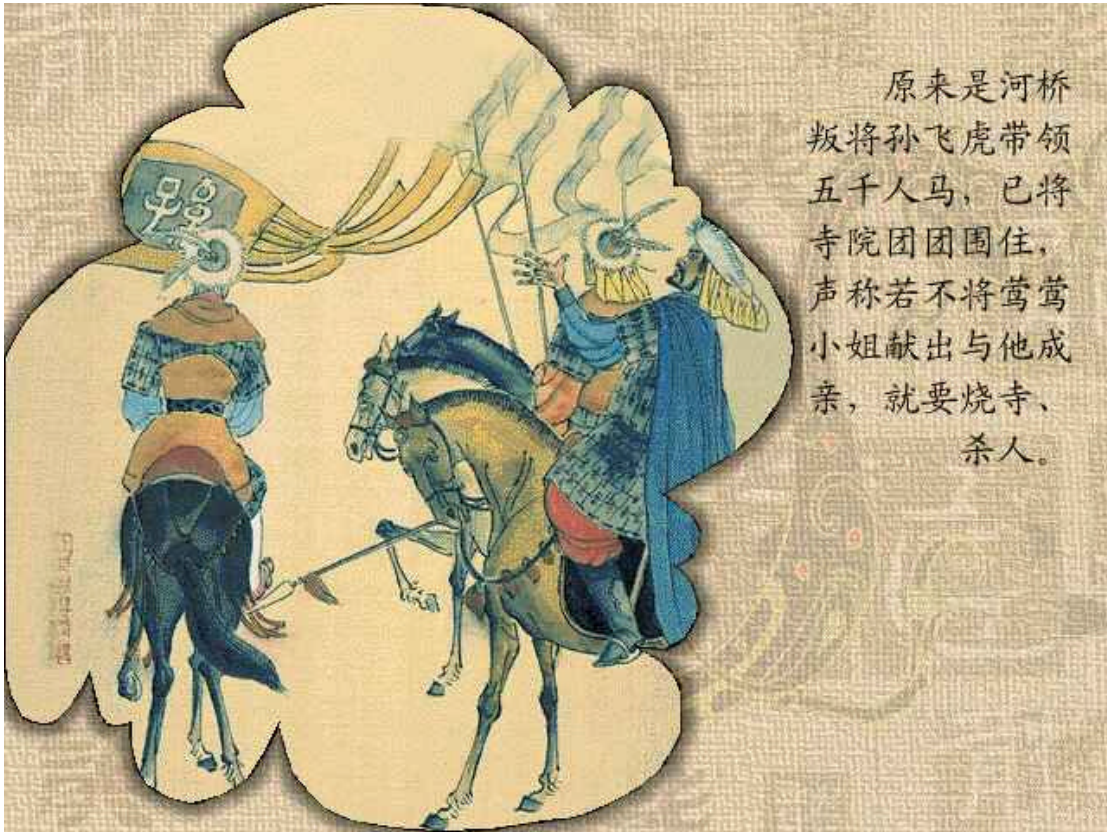 原来是河桥
叛将孙飞虎带领
五千人马，已将
寺院团团围住，
声称若不将莺莺
小姐献出与他成
亲，就要烧寺、
杀人。